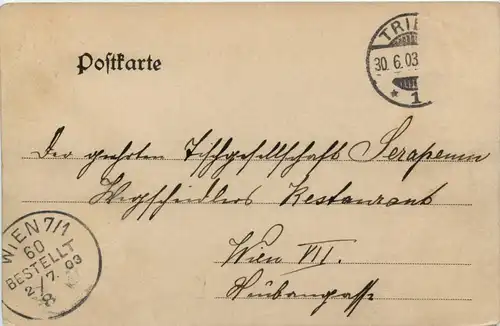 Postkarte
TRIE
30.6.03
* 1
Der geehrten Tischgesellschaft Serapeum
Wegscheidlers Restaurant
Wien VII.
Neubaugasse
WIEN 7/1
60
BESTELLT
2/7.03
8